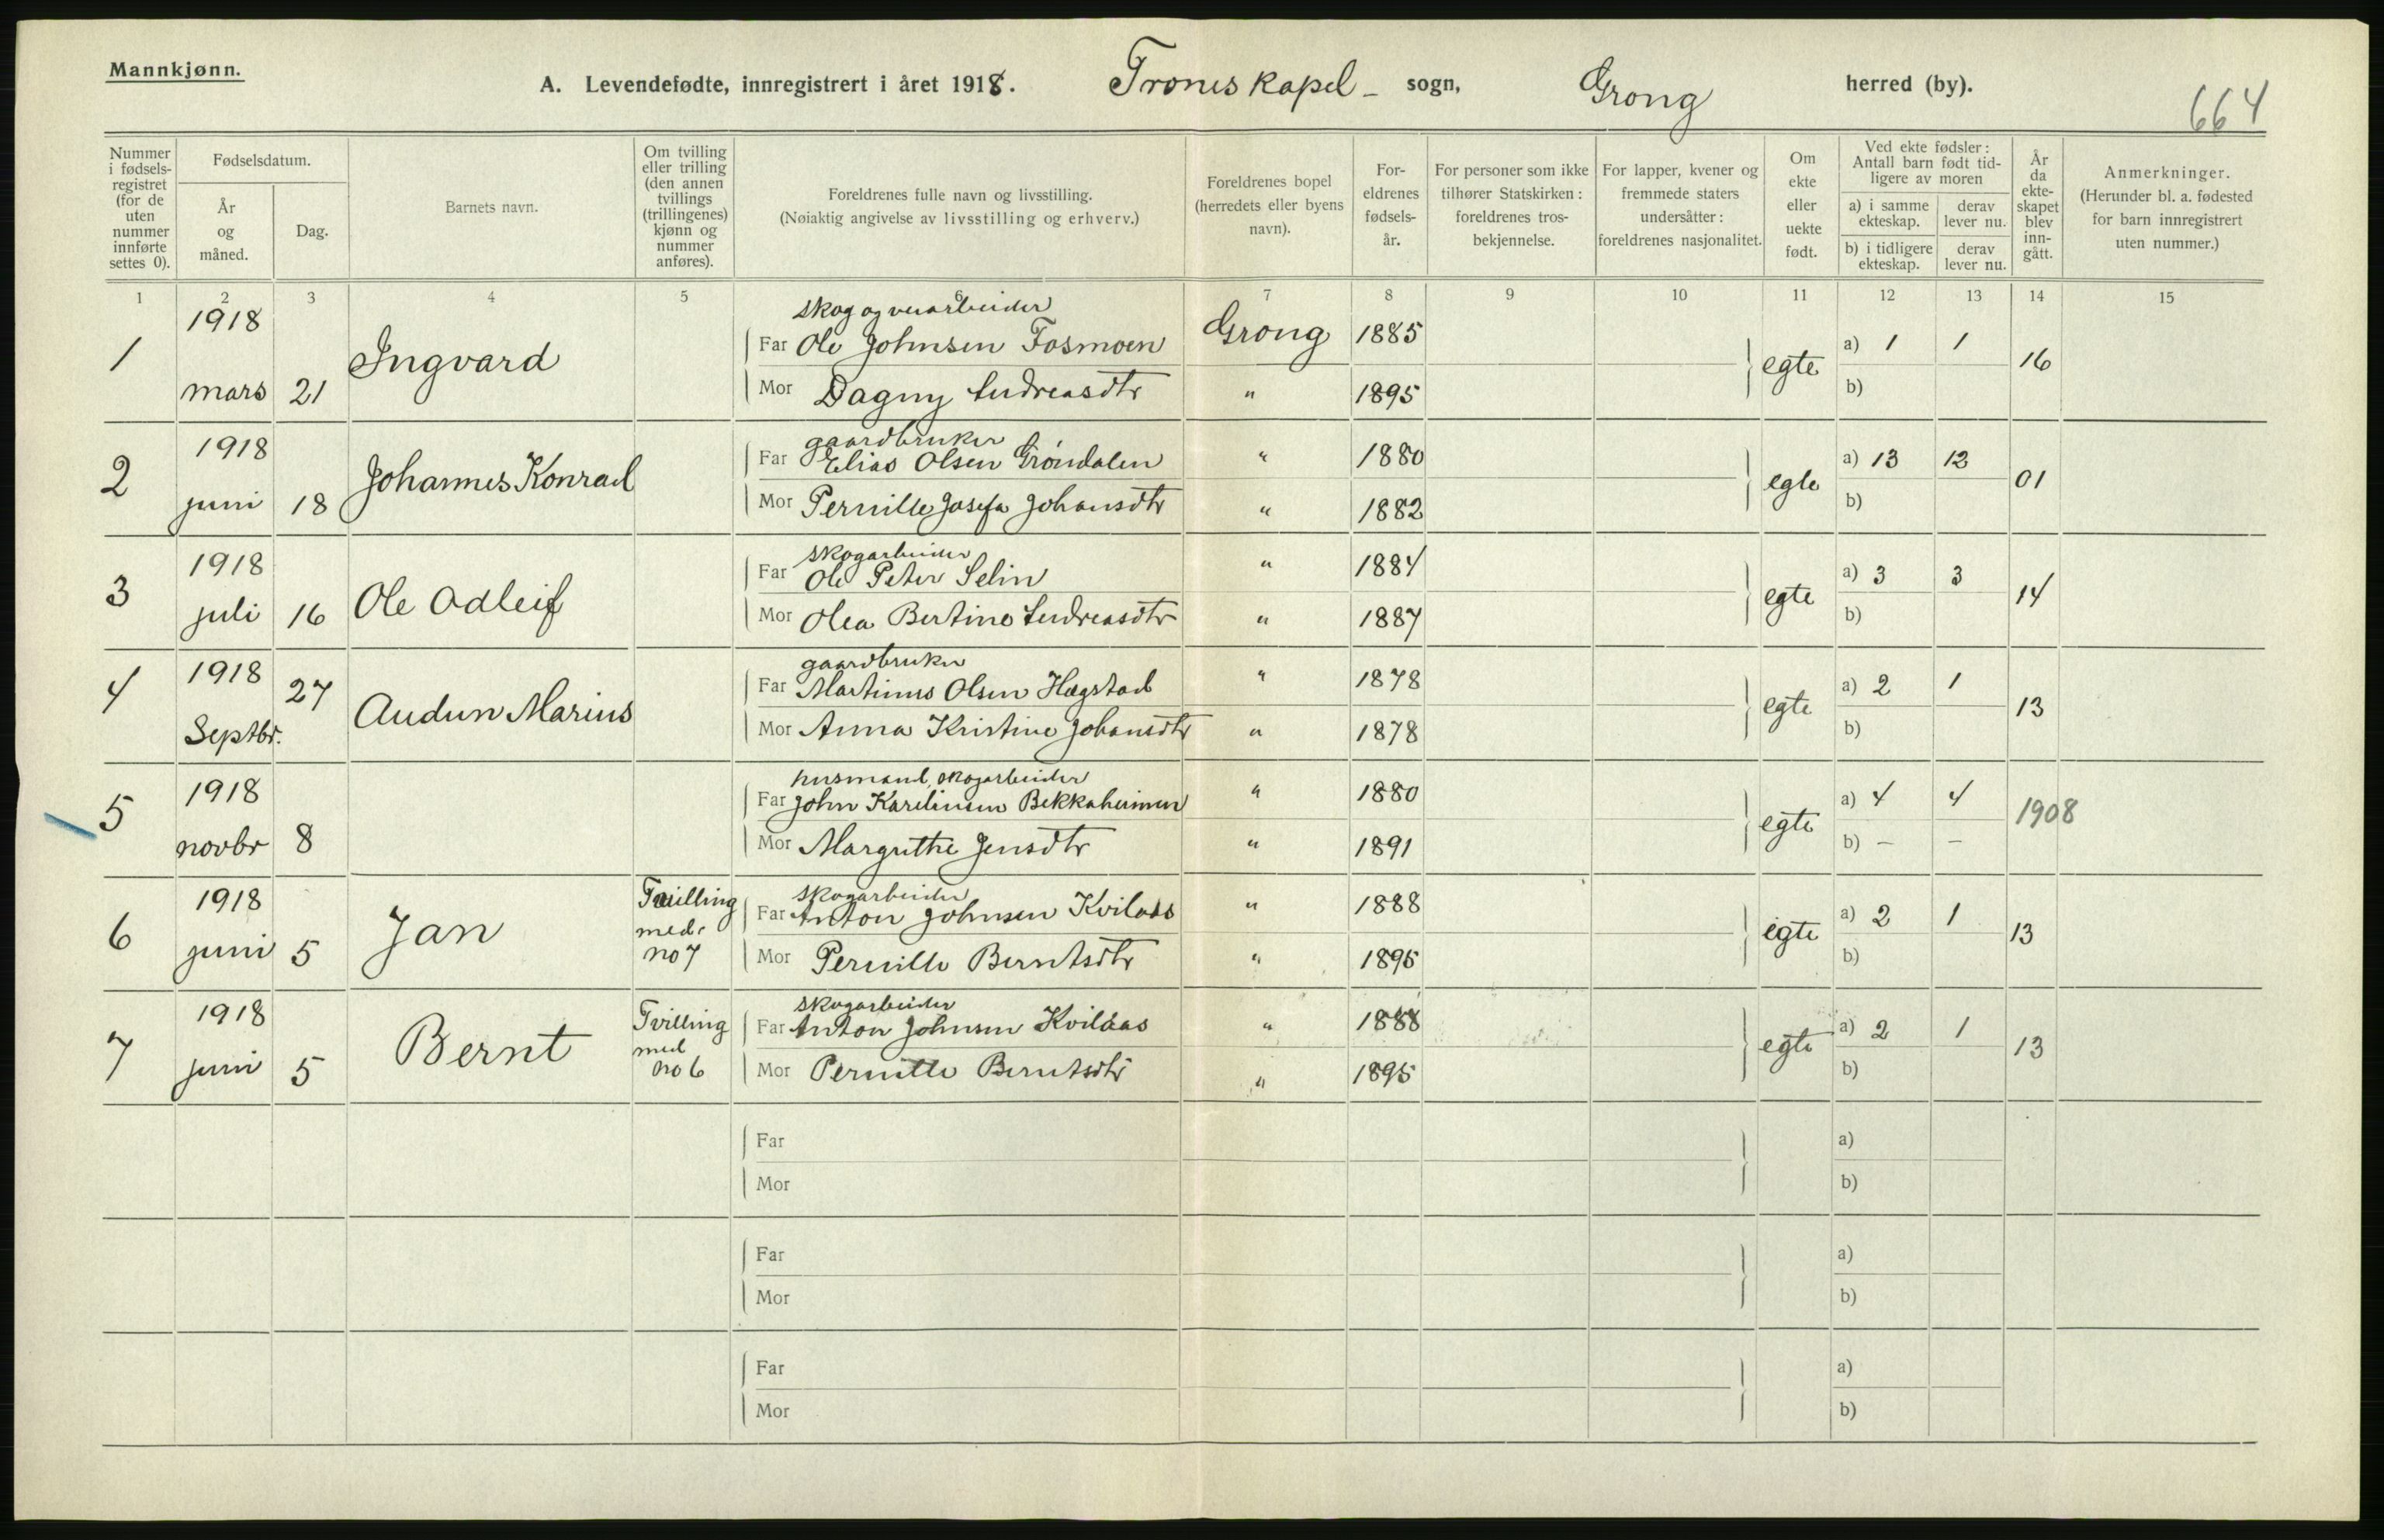 Mannkjønn.
A. Levendefødte, innregistrert i året 1918. Trones kapel - sogn, Grong herred (by).
664
Nummer i fødselsregistret (for de uten nummer innførte settes 0).
Fødselsdatum.
År og måned.
Dag.
Barnets navn.
Om tvilling eller trilling (den annen tvillings (trillingenes) kjønn og nummer anføres).
Foreldrenes fulle navn og livsstilling.
(Nøiaktig angivelse av livsstilling og erhverv.)
Foreldrenes bopel (herredets eller byens navn).
For-eldrenes fødsels-år.
For personer som ikke tilhører Statskirken: foreldrenes tros-bekjennelse.
For lapper, kvener og fremmede staters undersåtter: foreldrenes nasjonalitet.
Om ekte eller uekte født.
Ved ekte fødsler: Antall barn født tid-ligere av moren
a) i samme ekteskap. derav lever nu.
b) i tidligere ekteskap. derav lever nu.
År da ekte-skapet blev inn-gått.
Anmerkninger.
(Herunder bl. a. fødested for barn innregistrert uten nummer.)
1 2 3 4 5 6 7 8 9 10 11 12 13 14 15
skog og veiarbeider
1 1918 mars 21 Ingvard Far Ole Johnsen Fosmoen Grong 1885 egte a) 1 1 16
Mor Dagny Andreasdtr " 1895 b)
gaardbruker
2 1918 juni 18 Johannes Konrad Far Elias Olsen Gröndalen " 1880 egte a) 13 12 01
Mor Pernille Josefa Johansdtr " 1882 b)
skogarbeider
3 1918 juli 16 Ole Odleif Far Ole Peter Selin " 1884 egte a) 3 3 14
Mor Olea Bertine Andreasdtr " 1887 b)
gaardbruker
4 1918 Septbr. 27 Audun Marius Far Martinus Olsen Hægstad " 1878 egte a) 2 1 13
Mor Anna Kristine Johansdtr " 1878 b)
husmand, skogarbeider
5 1918 novbr 8 Far John Karelinsen Bekkaheimen " 1880 egte a) 4 4 1908
Mor Margrethe Jensdtr " 1891 b) - -
skogarbeider
6 1918 juni 5 Jan Tvilling med no 7 Far Anton Johnsen Kvilaas " 1888 egte a) 2 1 13
Mor Pernille Berntsdtr " 1895 b)
skogarbeider
7 1918 juni 5 Bernt Tvilling med no 6 Far Anton Johnsen Kvilaas " 1888 egte a) 2 1 13
Mor Pernille Berntsdtr " 1895 b)
Far a)
Mor b)
Far a)
Mor b)
Far a)
Mor b)